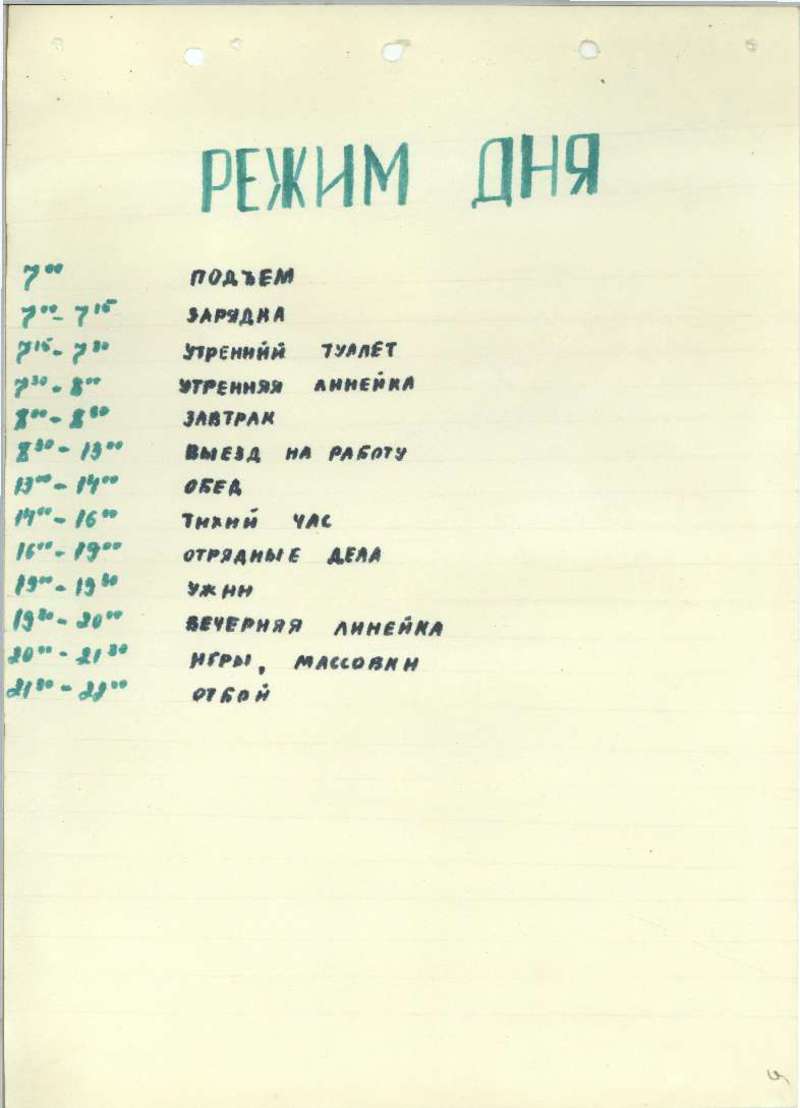 РЕЖИМ ДНЯ
7⁰⁰ ПОДЪЕМ
7⁰⁰ - 7¹⁵ ЗАРЯДКА
7¹⁵ - 7³⁰ УТРЕННИЙ ТУАЛЕТ
7³⁰ - 8⁰⁰ УТРЕННЯЯ ЛИНЕЙКА
8⁰⁰ - 8³⁰ ЗАВТРАК
8³⁰ - 13⁰⁰ ВЫЕЗД НА РАБОТУ
13⁰⁰ - 14⁰⁰ ОБЕД
14⁰⁰ - 16⁰⁰ ТИХИЙ ЧАС
16⁰⁰ - 19⁰⁰ ОТРЯДНЫЕ ДЕЛА
19⁰⁰ - 19³⁰ УЖИН
19³⁰ - 20⁰⁰ ВЕЧЕРНЯЯ ЛИНЕЙКА
20⁰⁰ - 21³⁰ ИГРЫ, МАССОВКИ
21³⁰ - 22⁰⁰ ОТБОЙ